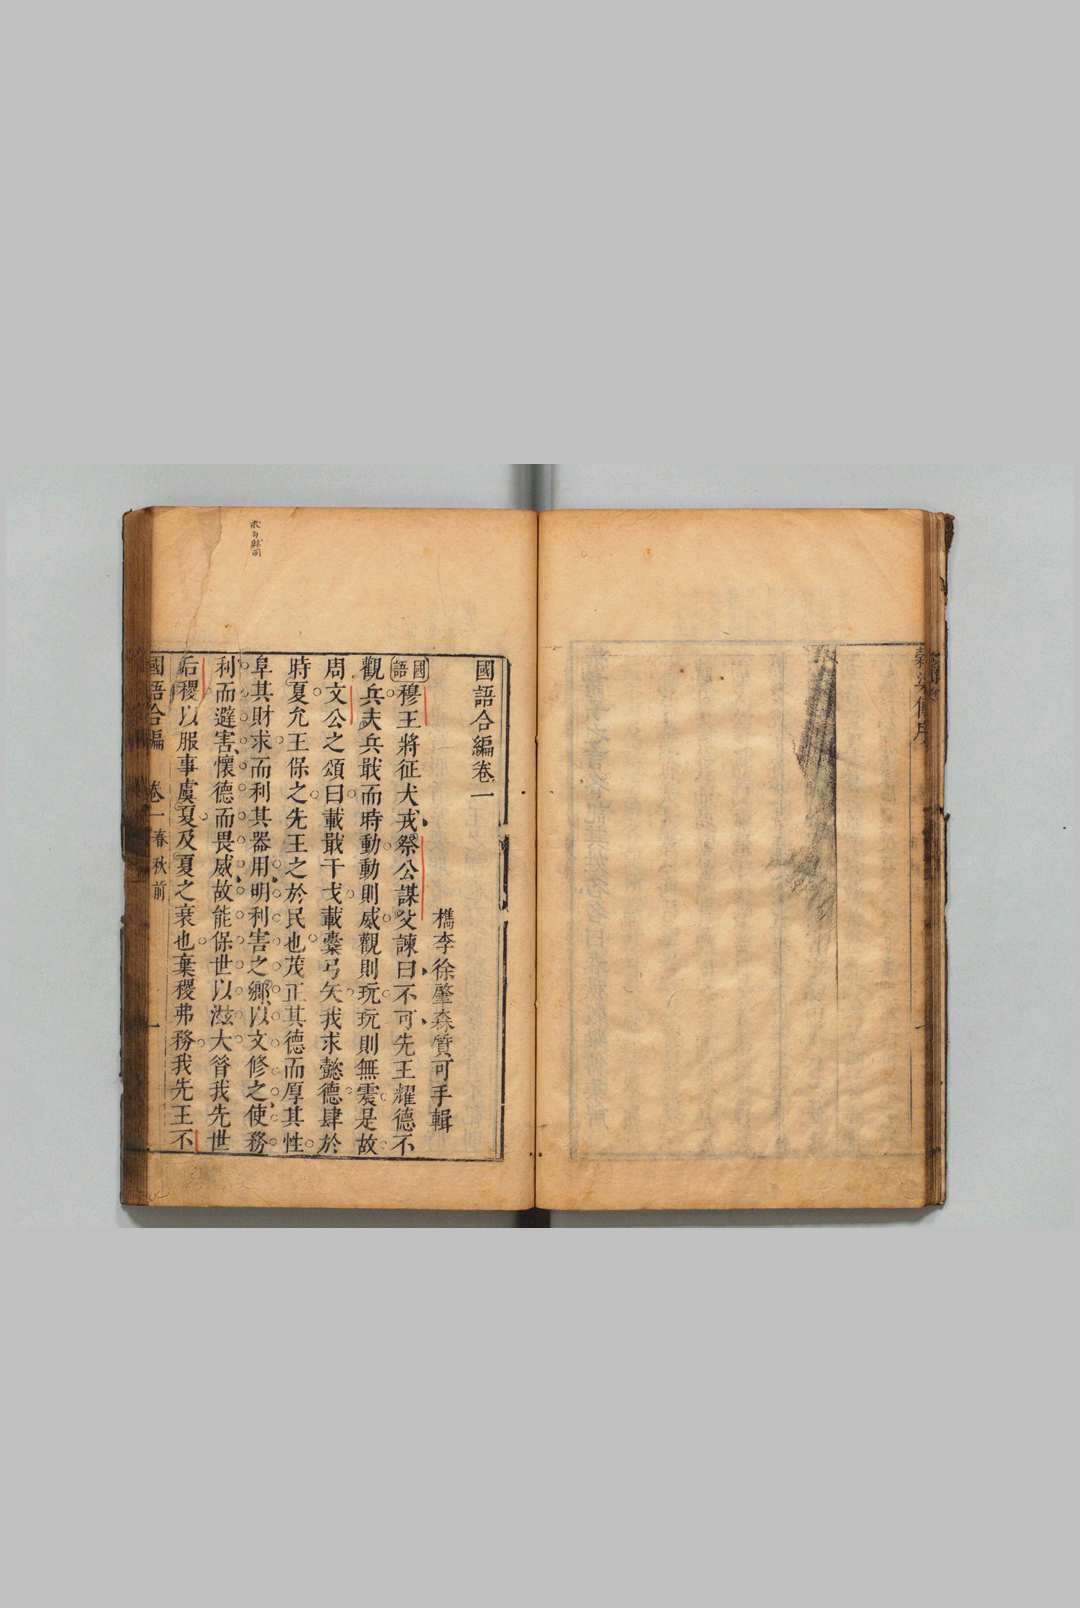 國語合編卷一
檇李徐肇森質可手輯
國語
穆王將征犬戎祭公謀父諫曰不可先王耀德不
觀兵夫兵戢而時動動則威觀則玩玩則無震是故
周文公之頌曰載戢干戈載櫜弓矢我求懿德肆於
時夏允王保之先王之於民也茂正其德而厚其性
阜其財求而利其器用明利害之鄉以文修之使務
利而避害懷德而畏威故能保世以滋大昝我先世
后稷以服事虞夏及夏之衰也棄稷弗務我先王不
國語合編
卷一
春秋前
一